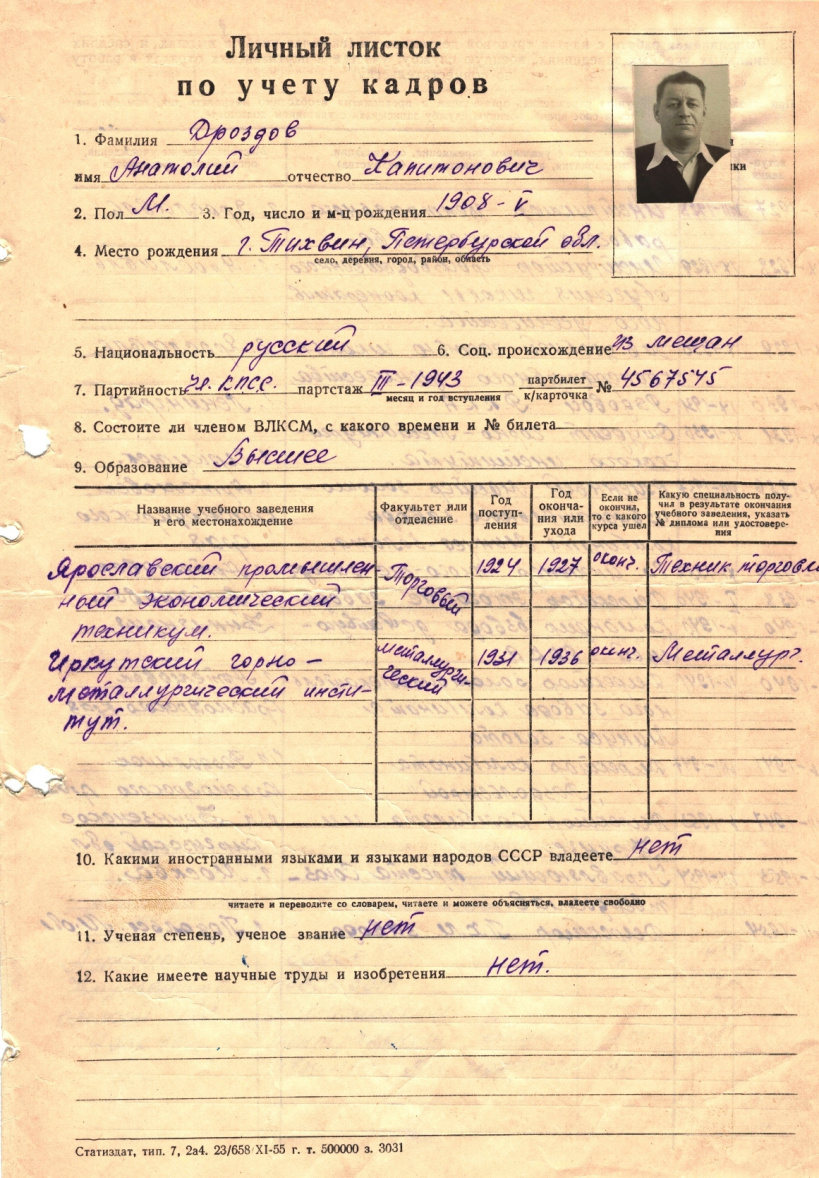 Личный листок
по учету кадров
1. Фамилия Дроздов
имя Анатолий отчество Капитонович
2. Пол М. 3. Год, число и м-ц рождения 1908 - V
4. Место рождения г. Тихвин, Петербурской обл.
село, деревня, город, район, область
5. Национальность русский 6. Соц. происхождение из мещан
7. Партийность чл. КПСС. партстаж III - 1943 партбилет № 4567545
месяц и год вступления к/карточка
8. Состоите ли членом ВЛКСМ, с какого времени и № билета
9. Образование Высшее
Название учебного заведения и его местонахождение
Факультет или отделение
Год поступления
Год окончания или ухода
Если не окончил, то с какого курса ушел
Какую специальность получил в результате окончания учебного заведения, указать № диплома или удостоверения
Ярославский промышлен- Торговый 1924 1927 оконч. Техник торговли
ный экономический
техникум.
Иркутский горно- металлурги- 1931 1936 оконч. Металлург.
металлургический инсти- ческий
тут.
10. Какими иностранными языками и языками народов СССР владеете нет
читаете и переводите со словарем, читаете и можете объясняться, владеете свободно
11. Ученая степень, ученое звание нет
12. Какие имеете научные труды и изобретения нет.
Статиздат, тип. 7, 2а4. 23/658 XI-55 г. т. 500000 з. 3031